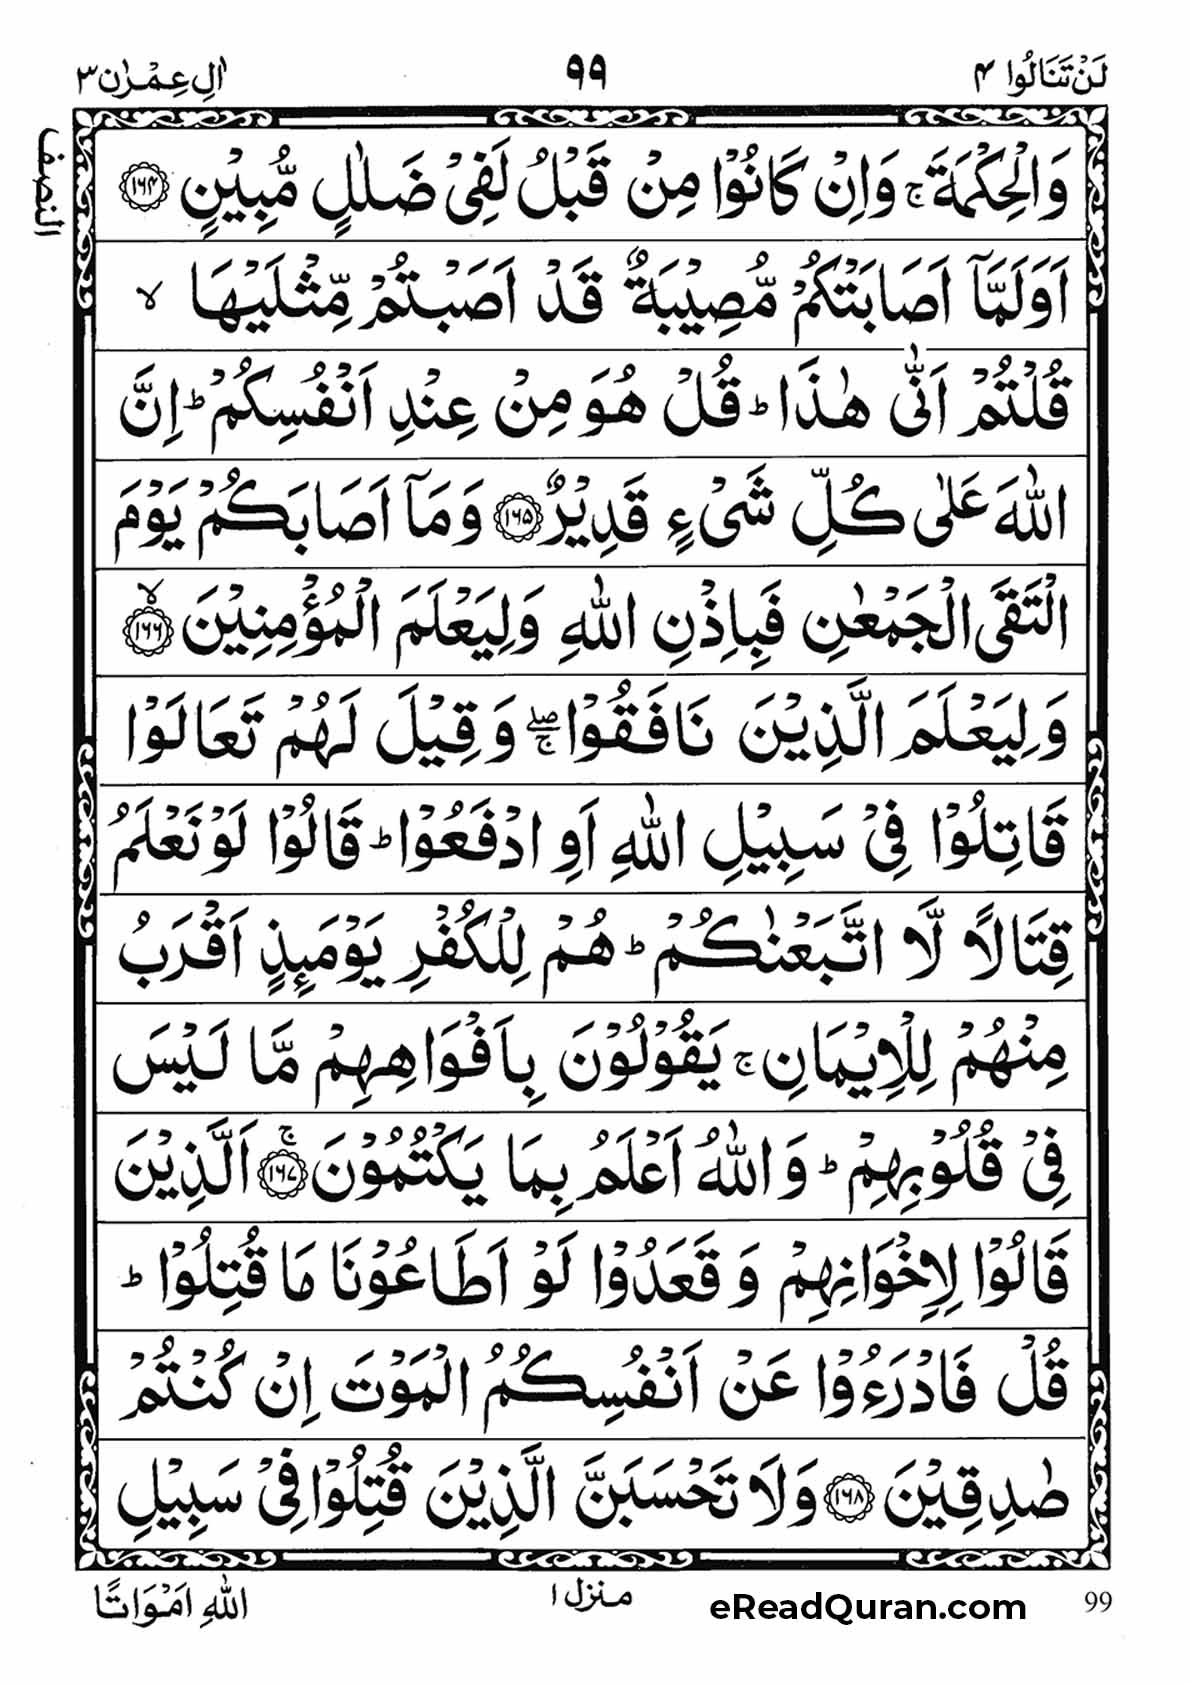 لَنْ تَنَالُوا ۴ ۹۹ اٰلِ عِمْرٰن ۳
النصف
وَالْحِكْمَةَ ۚ وَاِنْ كَانُوْا مِنْ قَبْلُ لَفِیْ ضَلٰلٍ مُّبِیْنٍ ﴿۱۶۴﴾
اَوَلَمَّاۤ اَصَابَتْكُمْ مُّصِیْبَةٌ قَدْ اَصَبْتُمْ مِّثْلَیْهَا ۙ
قُلْتُمْ اَنّٰی هٰذَا ؕ قُلْ هُوَ مِنْ عِنْدِ اَنْفُسِكُمْ ؕ اِنَّ
اللّٰهَ عَلٰی كُلِّ شَیْءٍ قَدِیْرٌ ﴿۱۶۵﴾ وَمَاۤ اَصَابَكُمْ یَوْمَ
الْتَقَی الْجَمْعٰنِ فَبِاِذْنِ اللّٰهِ وَلِیَعْلَمَ الْمُؤْمِنِیْنَ ﴿۱۶۶﴾ ۙ
وَلِیَعْلَمَ الَّذِیْنَ نَافَقُوْا ۖۚ وَقِیْلَ لَهُمْ تَعَالَوْا
قَاتِلُوْا فِیْ سَبِیْلِ اللّٰهِ اَوِ ادْفَعُوْا ؕ قَالُوْا لَوْ نَعْلَمُ
قِتَالًا لَّا اتَّبَعْنٰكُمْ ؕ هُمْ لِلْكُفْرِ یَوْمَىِٕذٍ اَقْرَبُ
مِنْهُمْ لِلْاِیْمَانِ ۚ یَقُوْلُوْنَ بِاَفْوَاهِهِمْ مَّا لَیْسَ
فِیْ قُلُوْبِهِمْ ؕ وَاللّٰهُ اَعْلَمُ بِمَا یَكْتُمُوْنَ ﴿۱۶۷﴾ ۚ اَلَّذِیْنَ
قَالُوْا لِاِخْوَانِهِمْ وَقَعَدُوْا لَوْ اَطَاعُوْنَا مَا قُتِلُوْا ؕ
قُلْ فَادْرَءُوْا عَنْ اَنْفُسِكُمُ الْمَوْتَ اِنْ كُنْتُمْ
صٰدِقِیْنَ ﴿۱۶۸﴾ وَلَا تَحْسَبَنَّ الَّذِیْنَ قُتِلُوْا فِیْ سَبِیْلِ
اللّٰهِ اَمْوَاتًا منزل ۱ eReadQuran.com 99